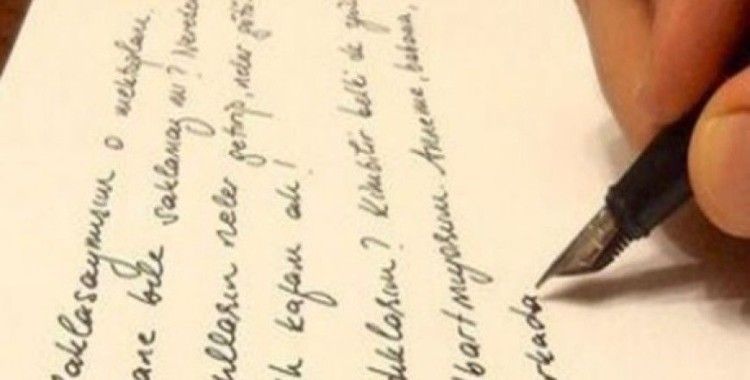 saklasaymışım o mektupları.
tane bile saklamaz mı? Nerede
yılların neler getirip, neler gö
h kafam ah!
dıklarım? Kimbilir belki de
bartmıyorum. Anneme, babama,
rkada